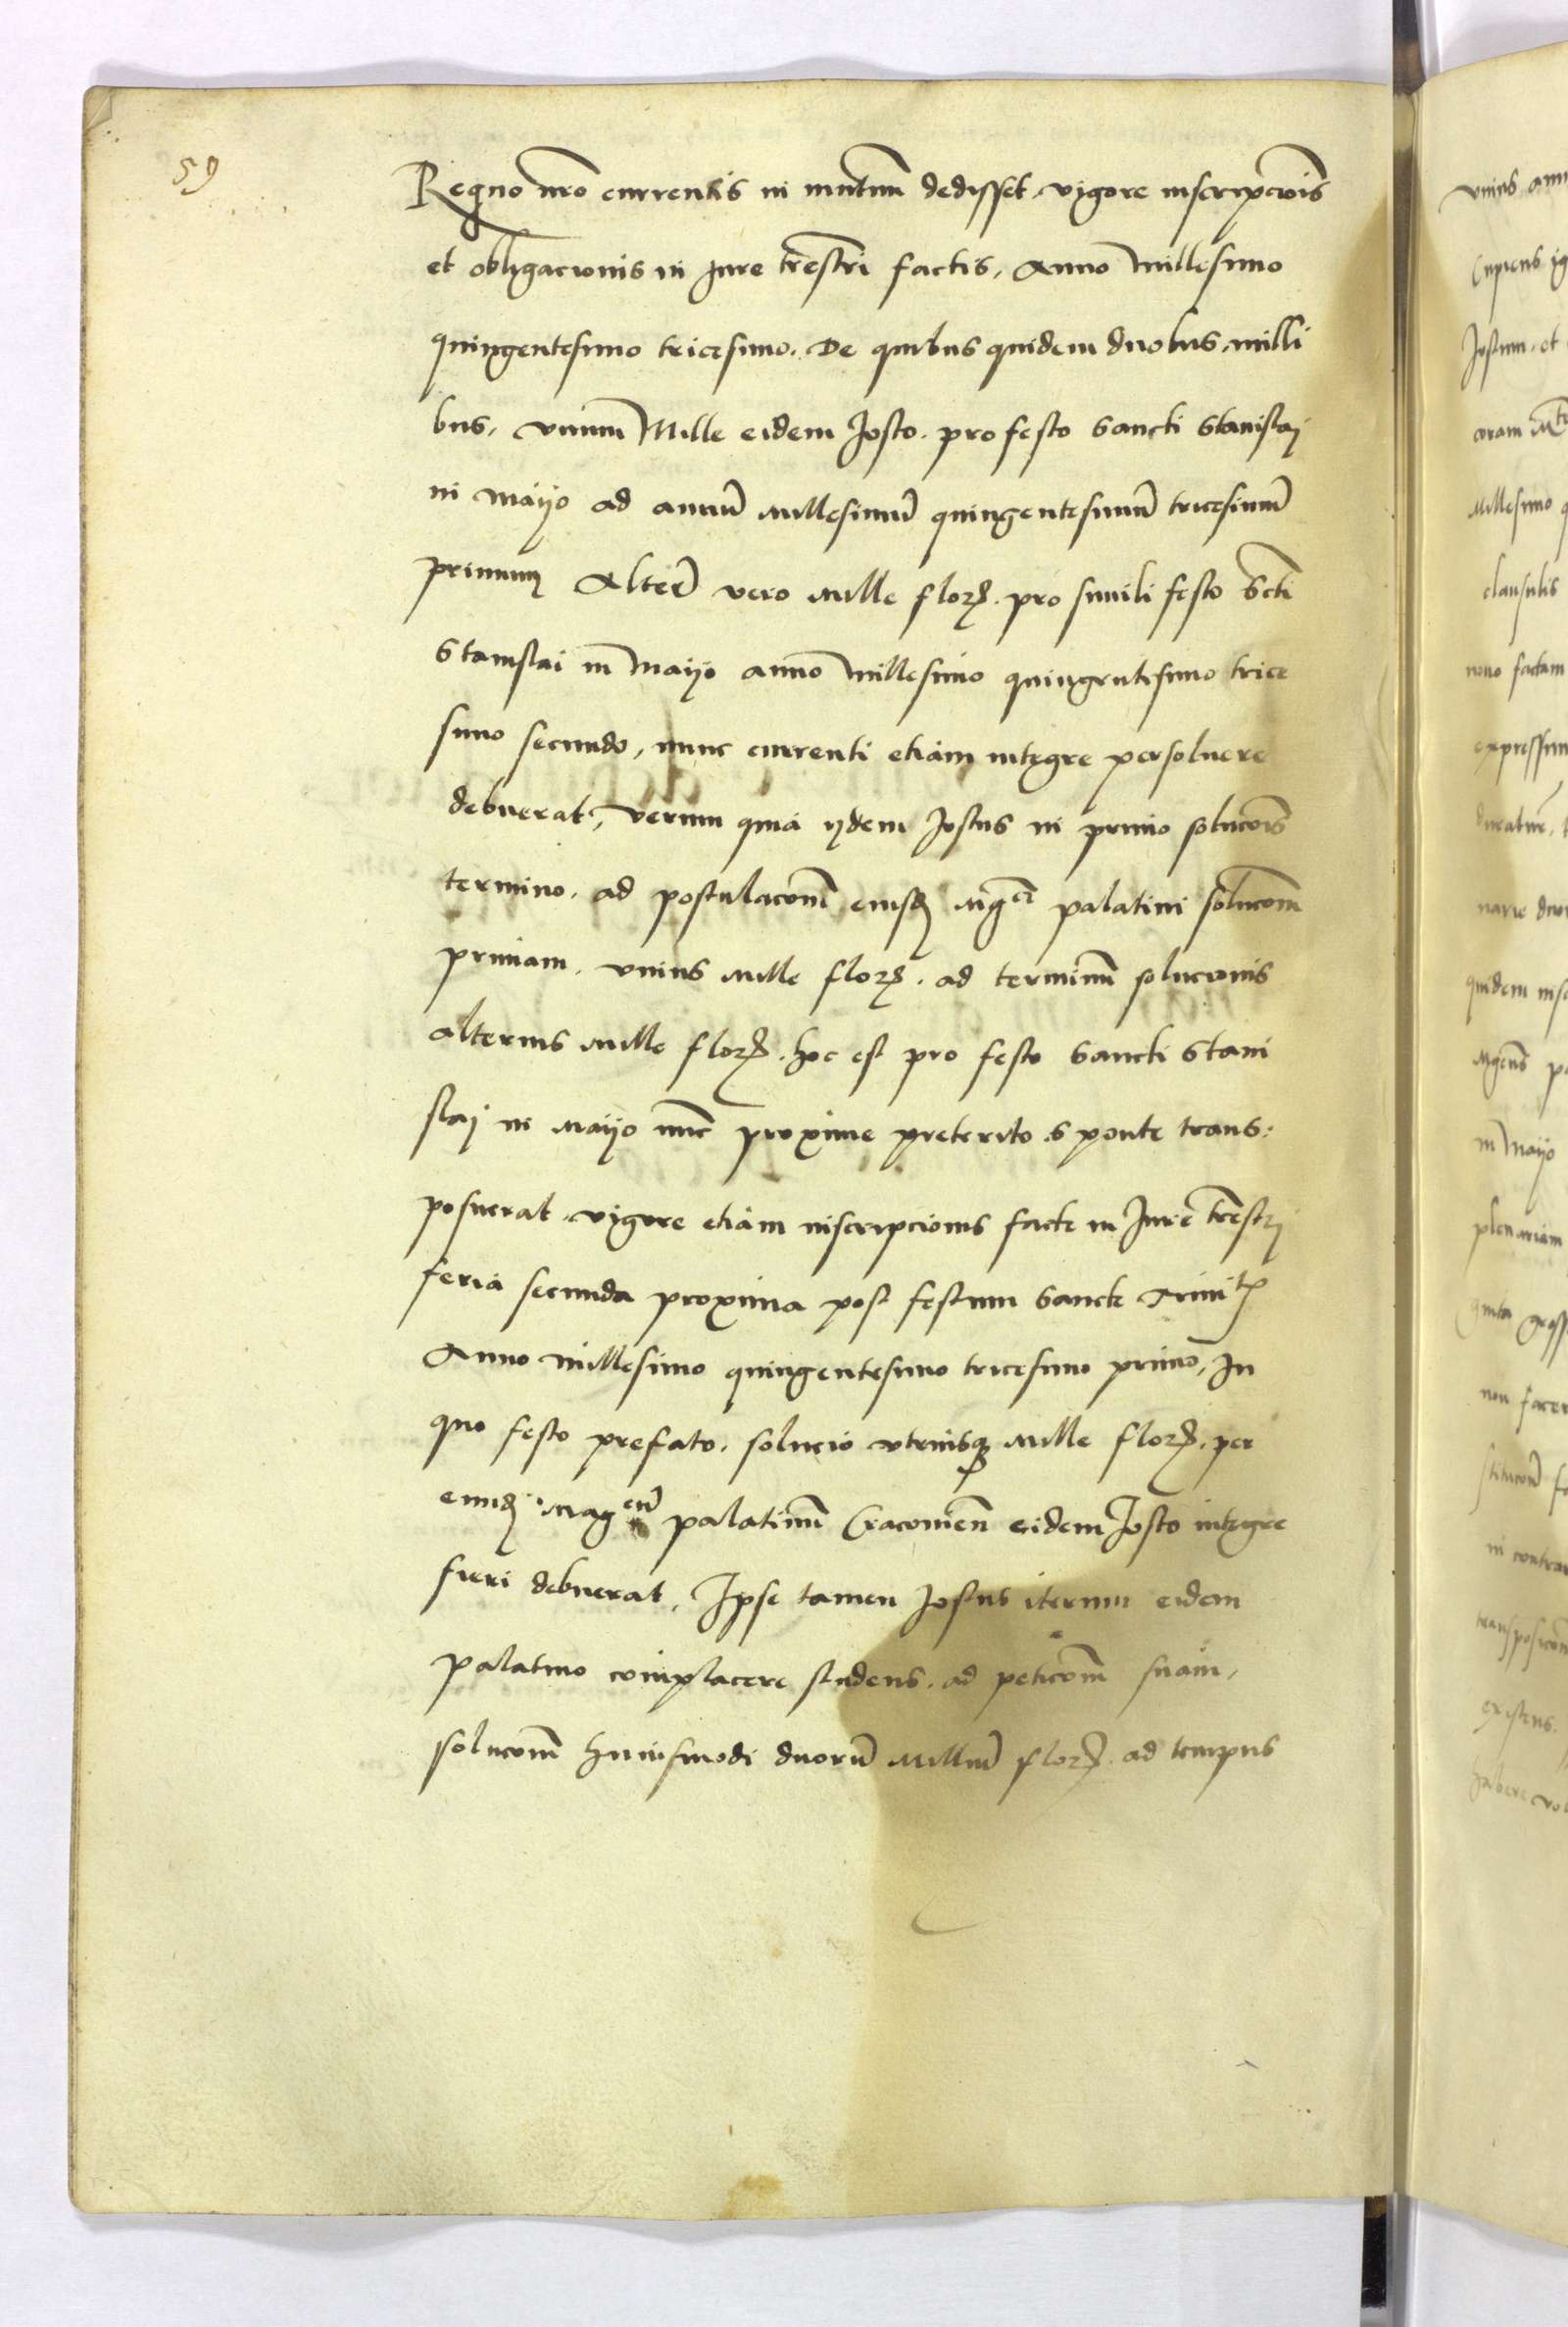 59
Regno nro currentis in mutuum dedisset, vigore inscripcionis
et obligacionis in Jure trestri factis, Anno Millesimo
quingentesimo tricesimo. De quibus quidem duobus milli
bus, vnum Mille eidem Josto, pro festo Sancti Stanislaj
in Maijo ad annu millesimu quingentesimu tricesimu
primum Alteru vero mille flor. pro simili festo Scti
Stanislai in Maijo anno millesimo quingentesimo trice
simo secundo, nunc currenti etiam integre persoluere
debuerat, verum quia ijdem Jostus in primo solucois
termino, ad postulacom eiusd Mgci palatini solucom
primam, vnius mille flor. ad terminu solucionis
alterius mille flor. hoc est pro festo Sancti Stani
slaj in Maijo nunc proxime preterito sponte trans:
posuerat, vigore etiam inscripcionis facte in Jure trestrj
feria secunda proxima post festum Sancte Trinit
Anno millesimo quingentesimo tricesimo primo, In
quo festo prefato, solucio vtriusq mille flor. per
eund Magcu palatinu Cracouien eidem Josto integre
fieri debuerat, Ipse tamen Jostus iterum eidem
palatino complacere studens, ad peticom suam,
solucom huiusmodi duoru milliu flor. ad tempus
vnius
Cupiens
Jostum, et
Millesimo
clausulis
nouo factam
quidem
in Maijo
non
existens
habere